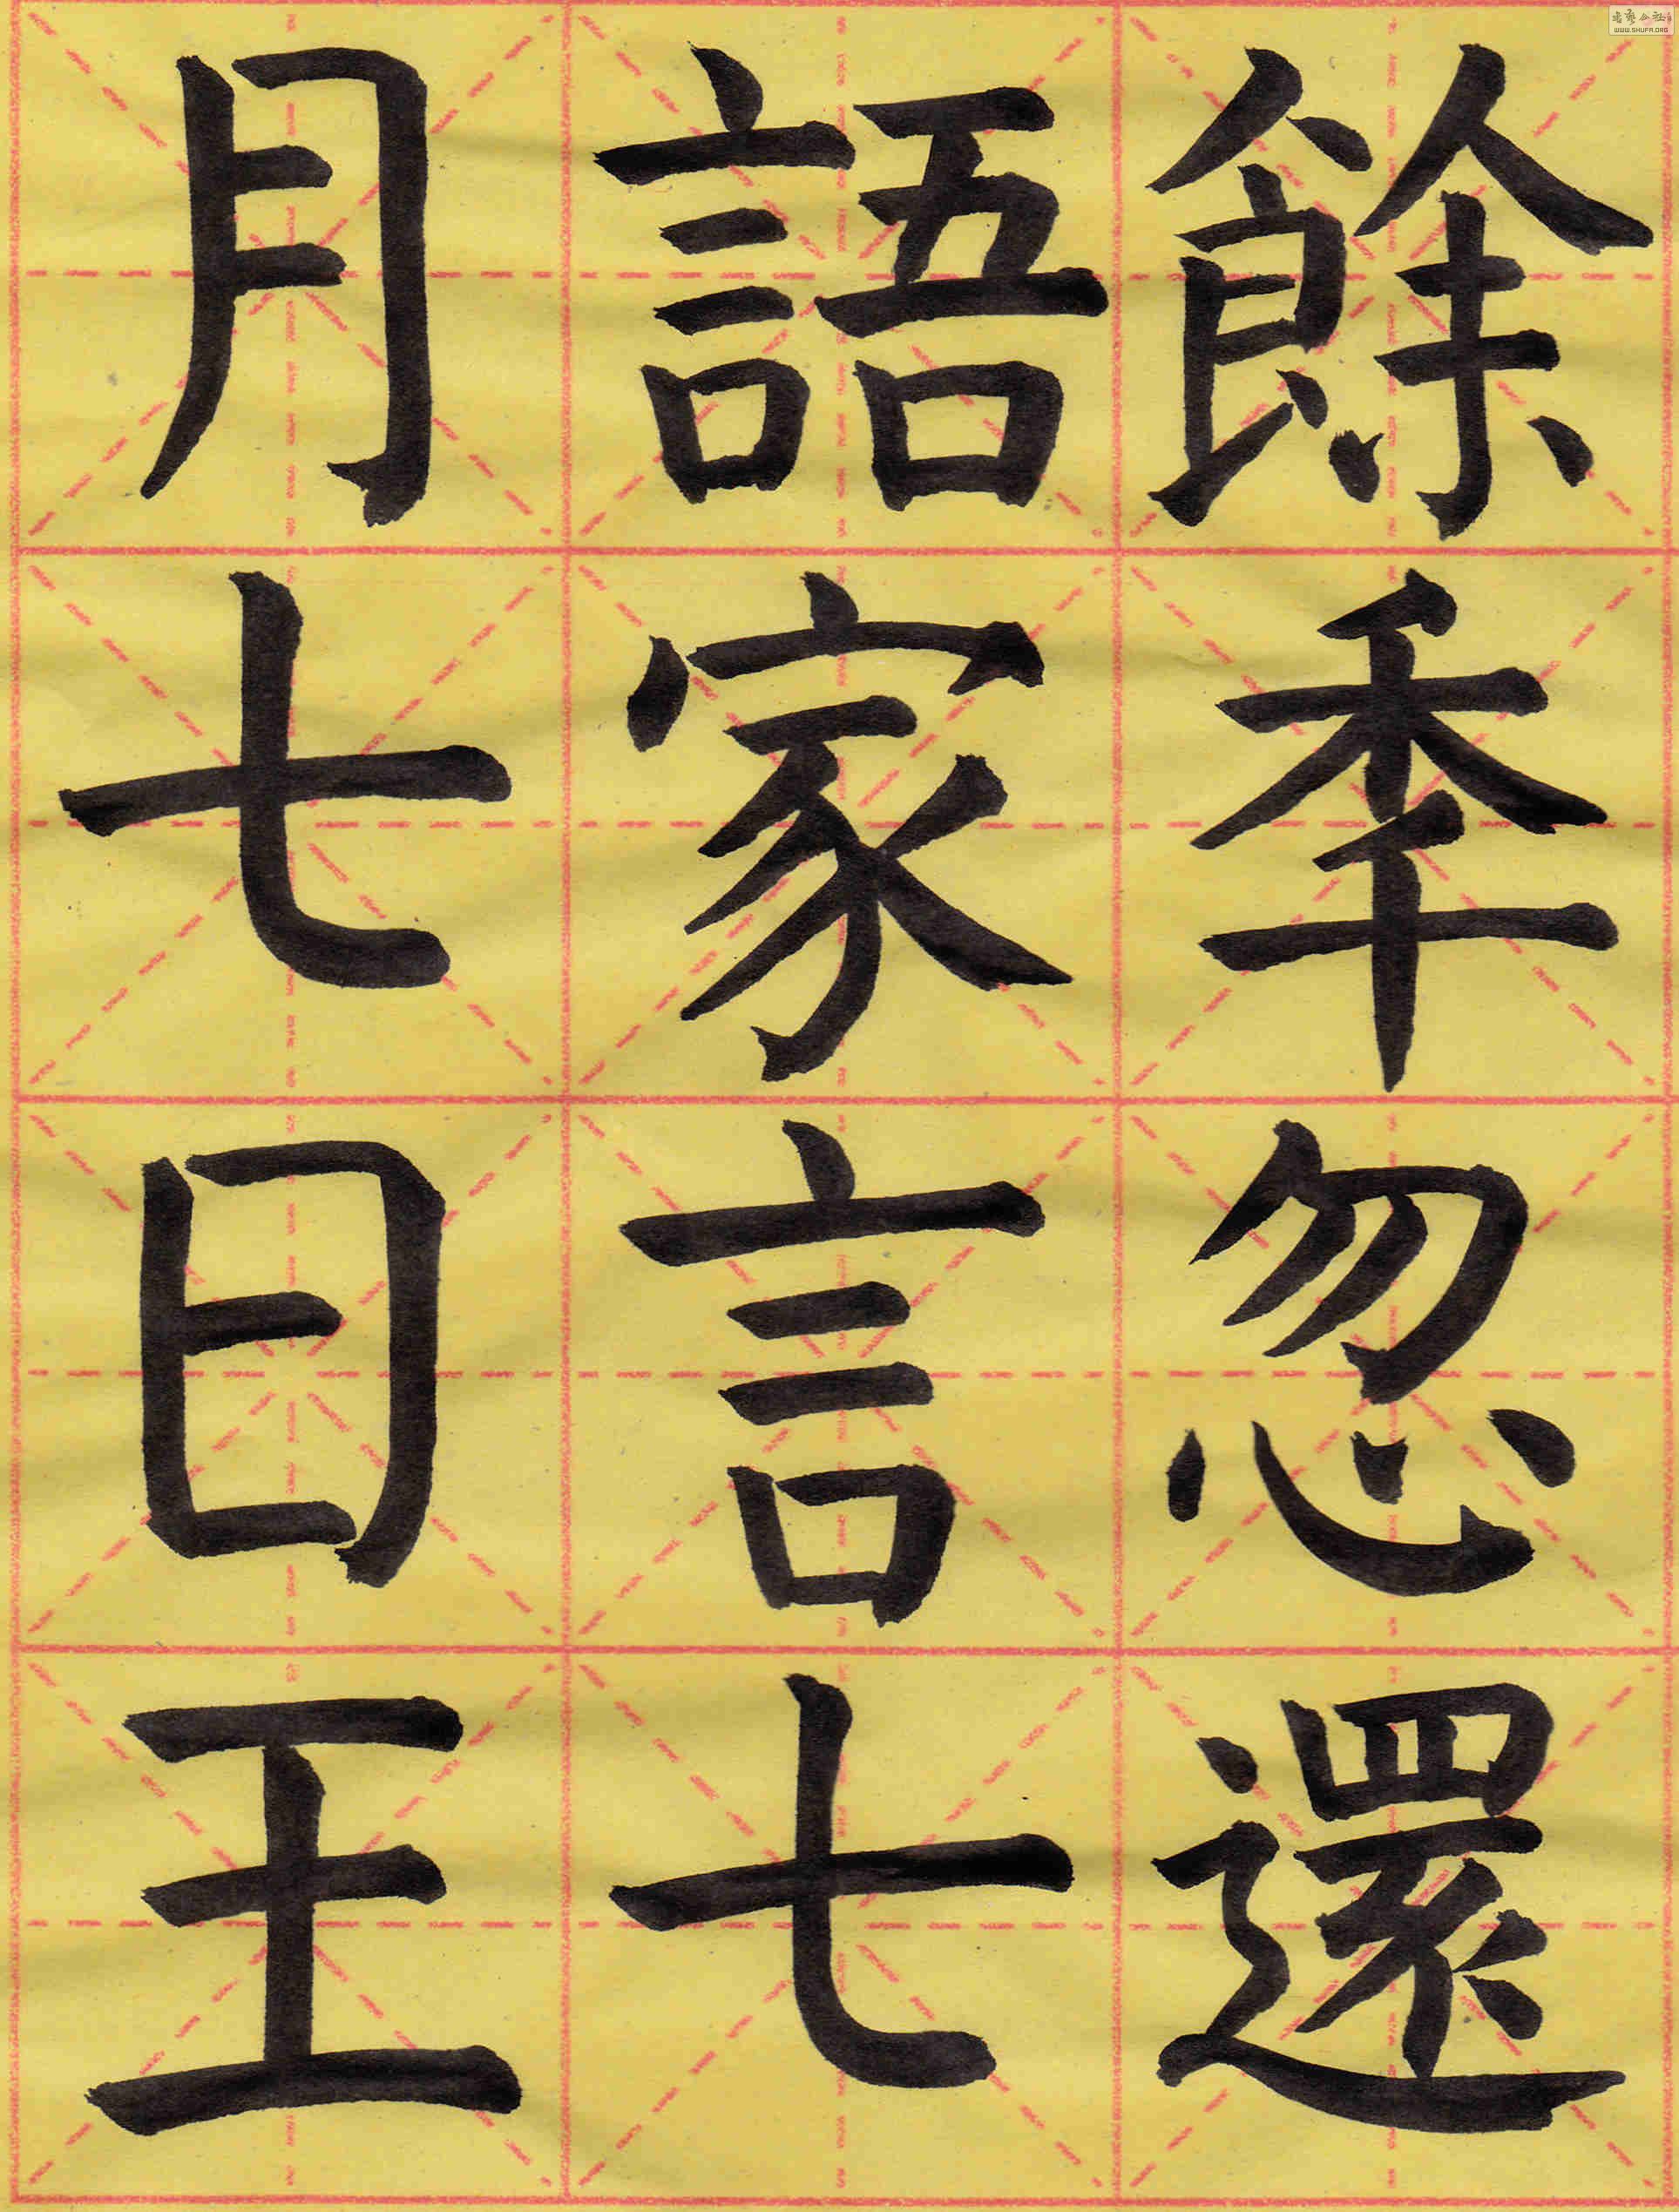 餘季忽還
語家言七
月七日王
WWW.SHUFA.ORG